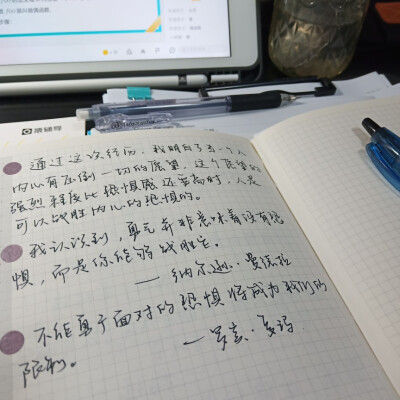 猿辅导
通过这次经历，我明白了当一个人
内心有压倒一切的愿望，这个愿望的
强烈程度比恐惧感还要高时，人是
可以战胜内心的恐惧的。
我认识到，勇气并非意味着没有恐
惧，而是你能够战胜它。
——纳尔逊·曼德拉
不能勇于面对的恐惧将成为我们的
限制。
—罗宾·夏玛